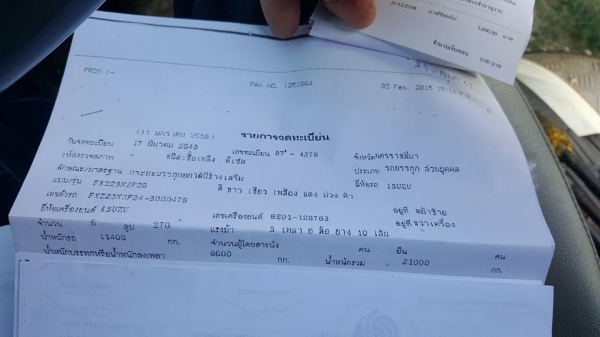 31/12/2558
1,600.00 บาท
จำนวนเงินสอบ 0.00 บาท
FROM :-
FAX NO. 1251064
03 Feb. 2015
(11 มกราคม 2556)
รายการจดทะเบียน
วันจดทะเบียน 17 มีนาคม 2548 เลขทะเบียน 67-4379 จังหวัดนครราชสีมา
ชนิดเชื้อเพลิง ดีเซล ประเภท รถบรรทุก ส่วนบุคคล
ลักษณะ/มาตรฐาน กระบะบรรทุกยกได้มีข้างเสริม ยี่ห้อรถ ISUZU
แบบ/รุ่น FXZ23N2F2D สี ขาว เขียว เหลือง แดง ม่วง ฟ้า
เลขตัวรถ FXZ23N2F24-3000475 อยู่ที่ หน้าซ้าย
ยี่ห้อเครื่องยนต์ ISUZU เลขเครื่องยนต์ 6SD1-128763 อยู่ที่ ขวาเครื่อง
จำนวน 6 สูบ 270 แรงม้า 3 เพลา 6 ล้อ ยาง 10 เส้น
น้ำหนักรถ 11400 กก. จำนวนผู้โดยสารนั่ง คน ยืน คน
น้ำหนักบรรทุกหรือน้ำหนักลงเพลา 9600 กก. น้ำหนักรวม 21000 กก.